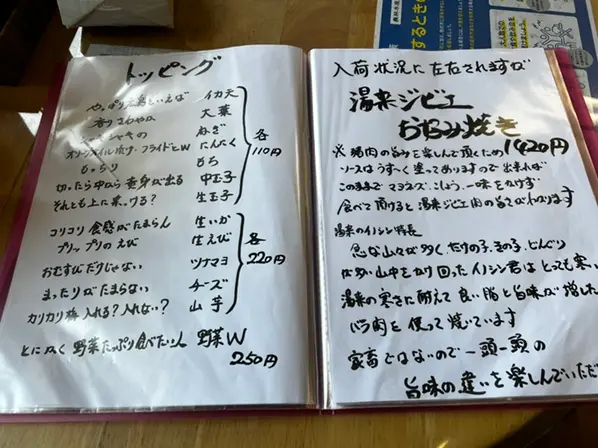 するときの
トッピング
やっぱり広島といえば イカ天
香りさわやか 大葉
シャキシャキの ねぎ
オリーブオイル漬け・フライドとW にんにく
もっちり もち
切ったら中から黄身が出る 中玉子
それとも上に乗っける? 生玉子
各110円
コリコリ食感がたまらん 生いか
プリップリのえび 生えび
おむすびだけじゃない ツナマヨ
まったりがたまらない チーズ
カリカリ梅 入れる?入れない? 山芋
各220円
とにかく野菜たっぷり食べたい人 野菜W
250円
入荷状況に左右されますが
湯来ジビエ
お好み焼き
1420円
※猪肉の旨みを楽しんで頂くため
ソースはうすーく塗ってありますので出来れば
このままでマヨネーズ、こしょう、一味をかけず
食べて頂けると湯来ジビエ肉の旨さがわかります
湯来のイノシシ特長
急な山々が多く、たけの子、きの子、どんぐり
が多い山中をかけ回ったイノシシ君はとっても
湯来の寒さに耐えて良い脂と旨味が増した
バラ肉を使って焼いています
家畜ではないので一頭一頭の
旨味の違いを楽しんでいただ